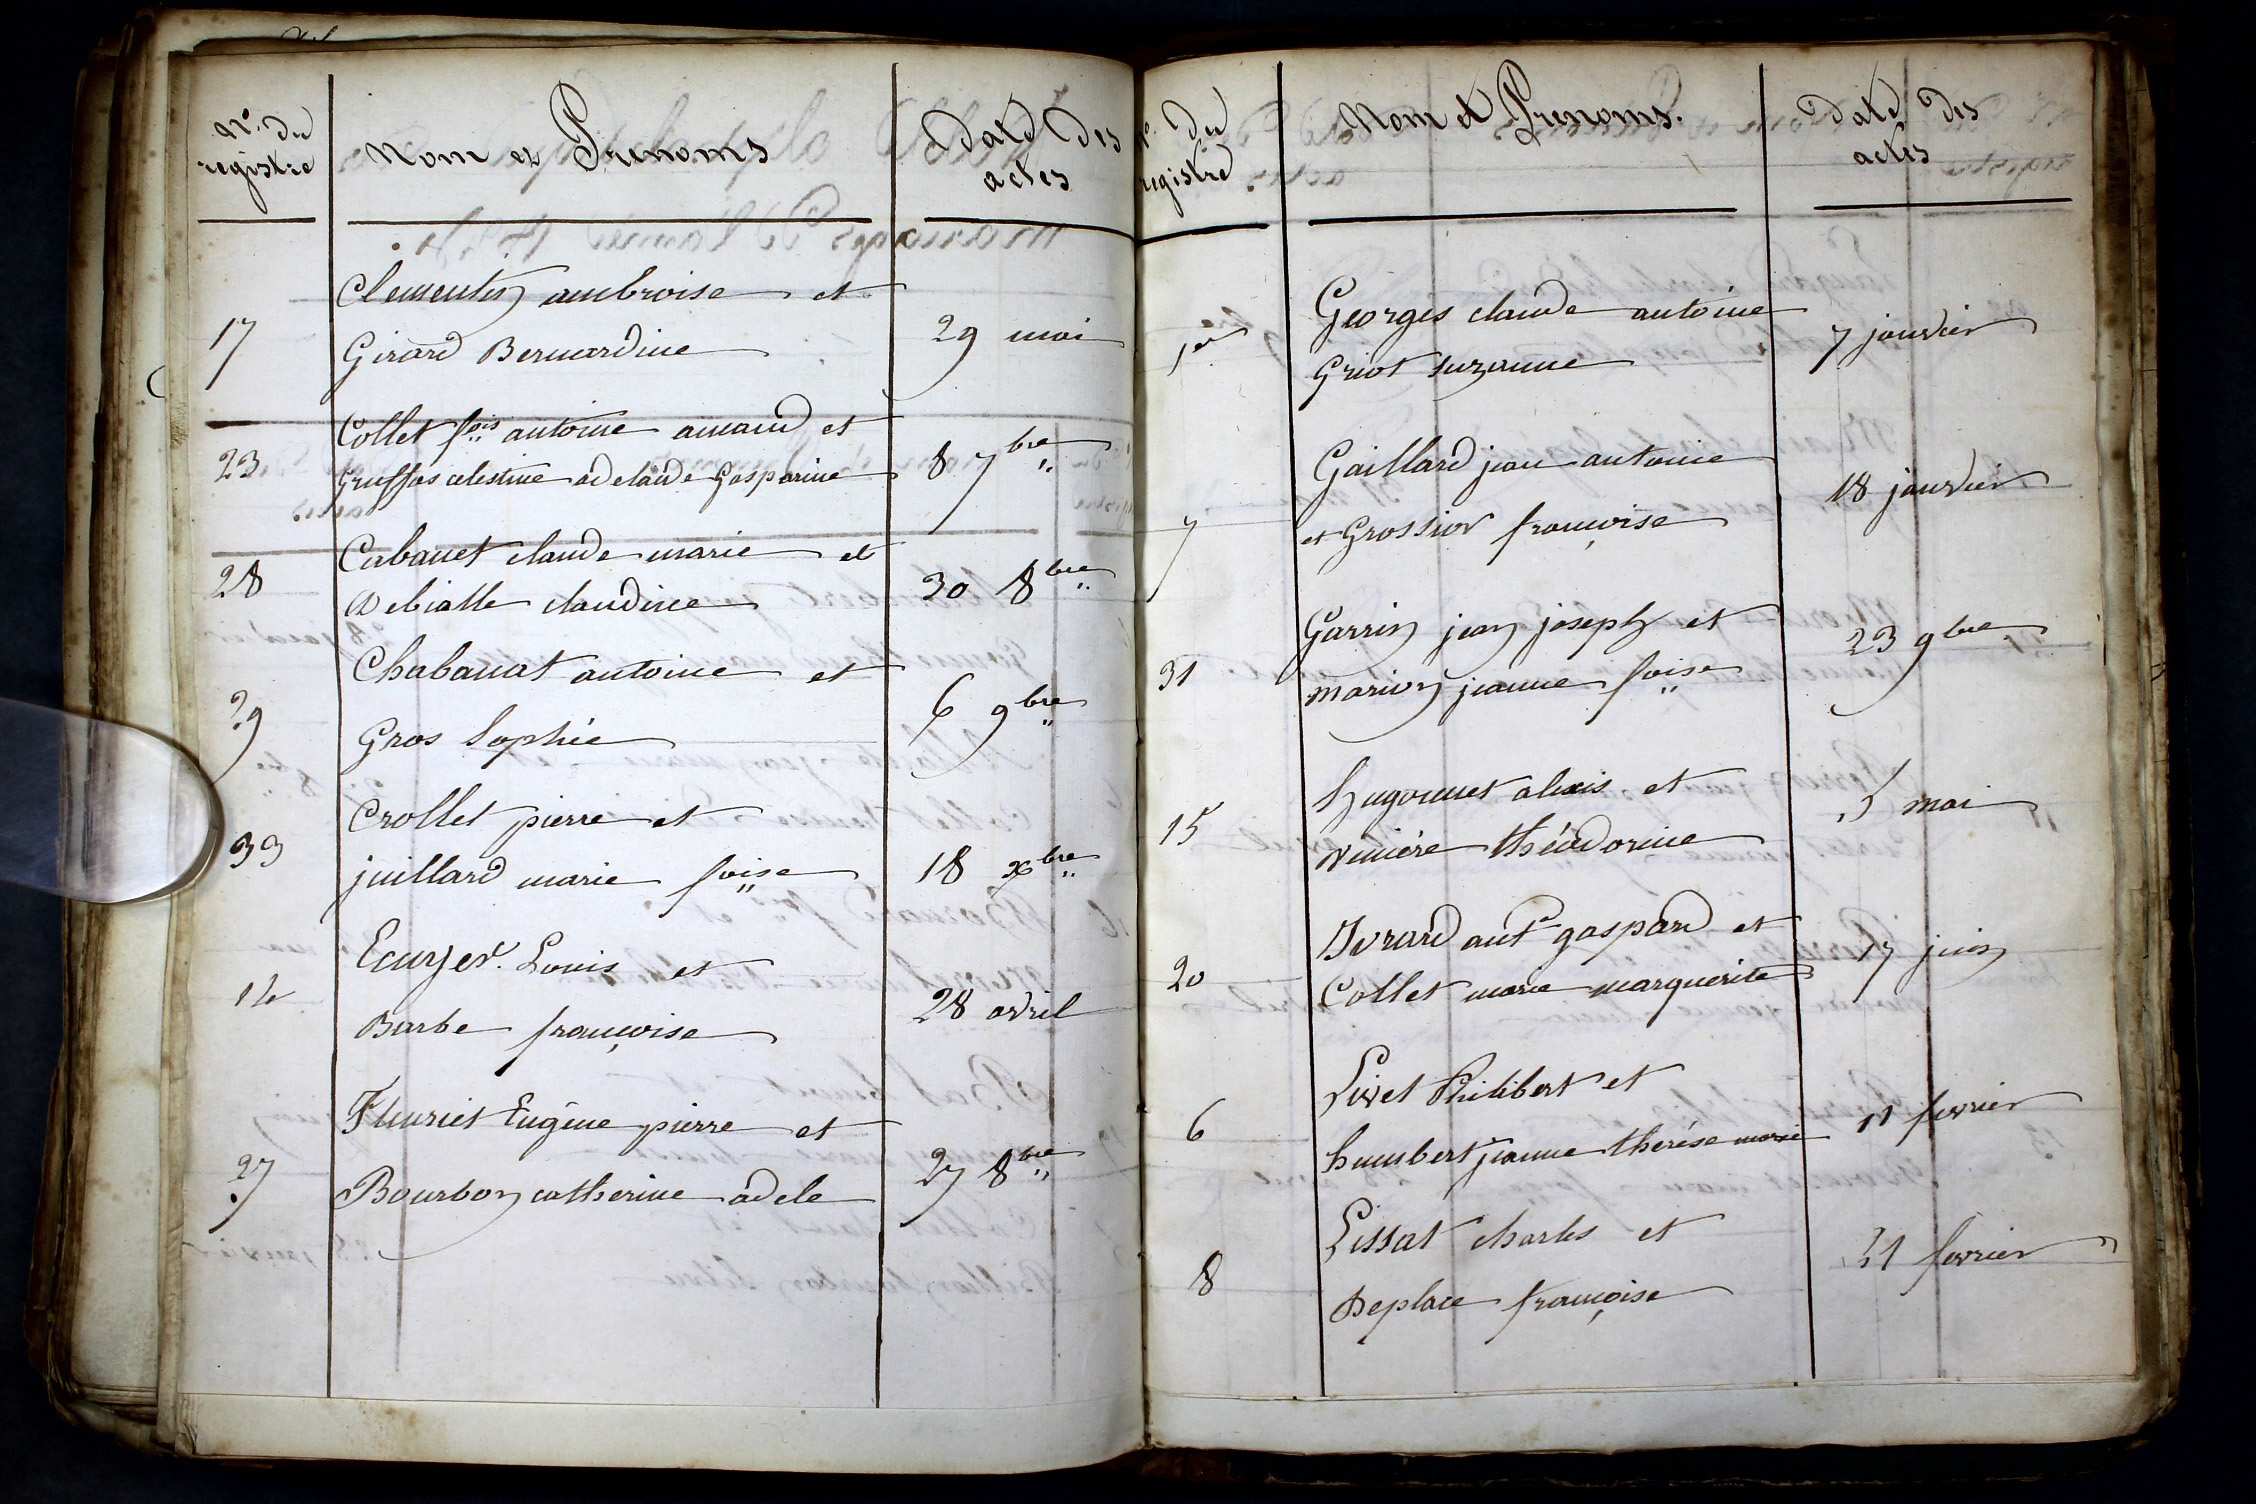 N.° du
registre
Nom et Prenoms
Date des
actes
17
Clementin ambroise et
Girard Bernardine
29 mai
23
Collet fois antoine amand et
Gruffas celestine adelaïde Gasparine
8 7bre
28
Cabanet claude marie et
Debiolle claudine
30 8bre
29
Chabanat antoine et
Gros Sophie
6 9bre
33
Crollet pierre et
juillard marie foise
18 xbre
14
Ecuyer Louis et
Barbe françoise
28 avril
27
Fleuriet Eugène pierre et
Bourbon catherine adele
27 8bre
N.° du
registre
Nom et Prenoms.
date des
actes
1er
Georges claude antoine
Griot suzanne
7 janvier
7
Gaillard jean antoine
et Grossior françoise
18 janvier
31
Garrin jean joseph et
marion jeanne foise
23 9bre
15
hugonnet alexis et
théodorine
5 mai
20
Ivrard ant gaspard et
Collet marie marguerite
17 juin
6
Livet Philibert et
humbert jeanne therése marie
11 fevrier
8
Lissat charles et
Deplace françoise
21 fevrier